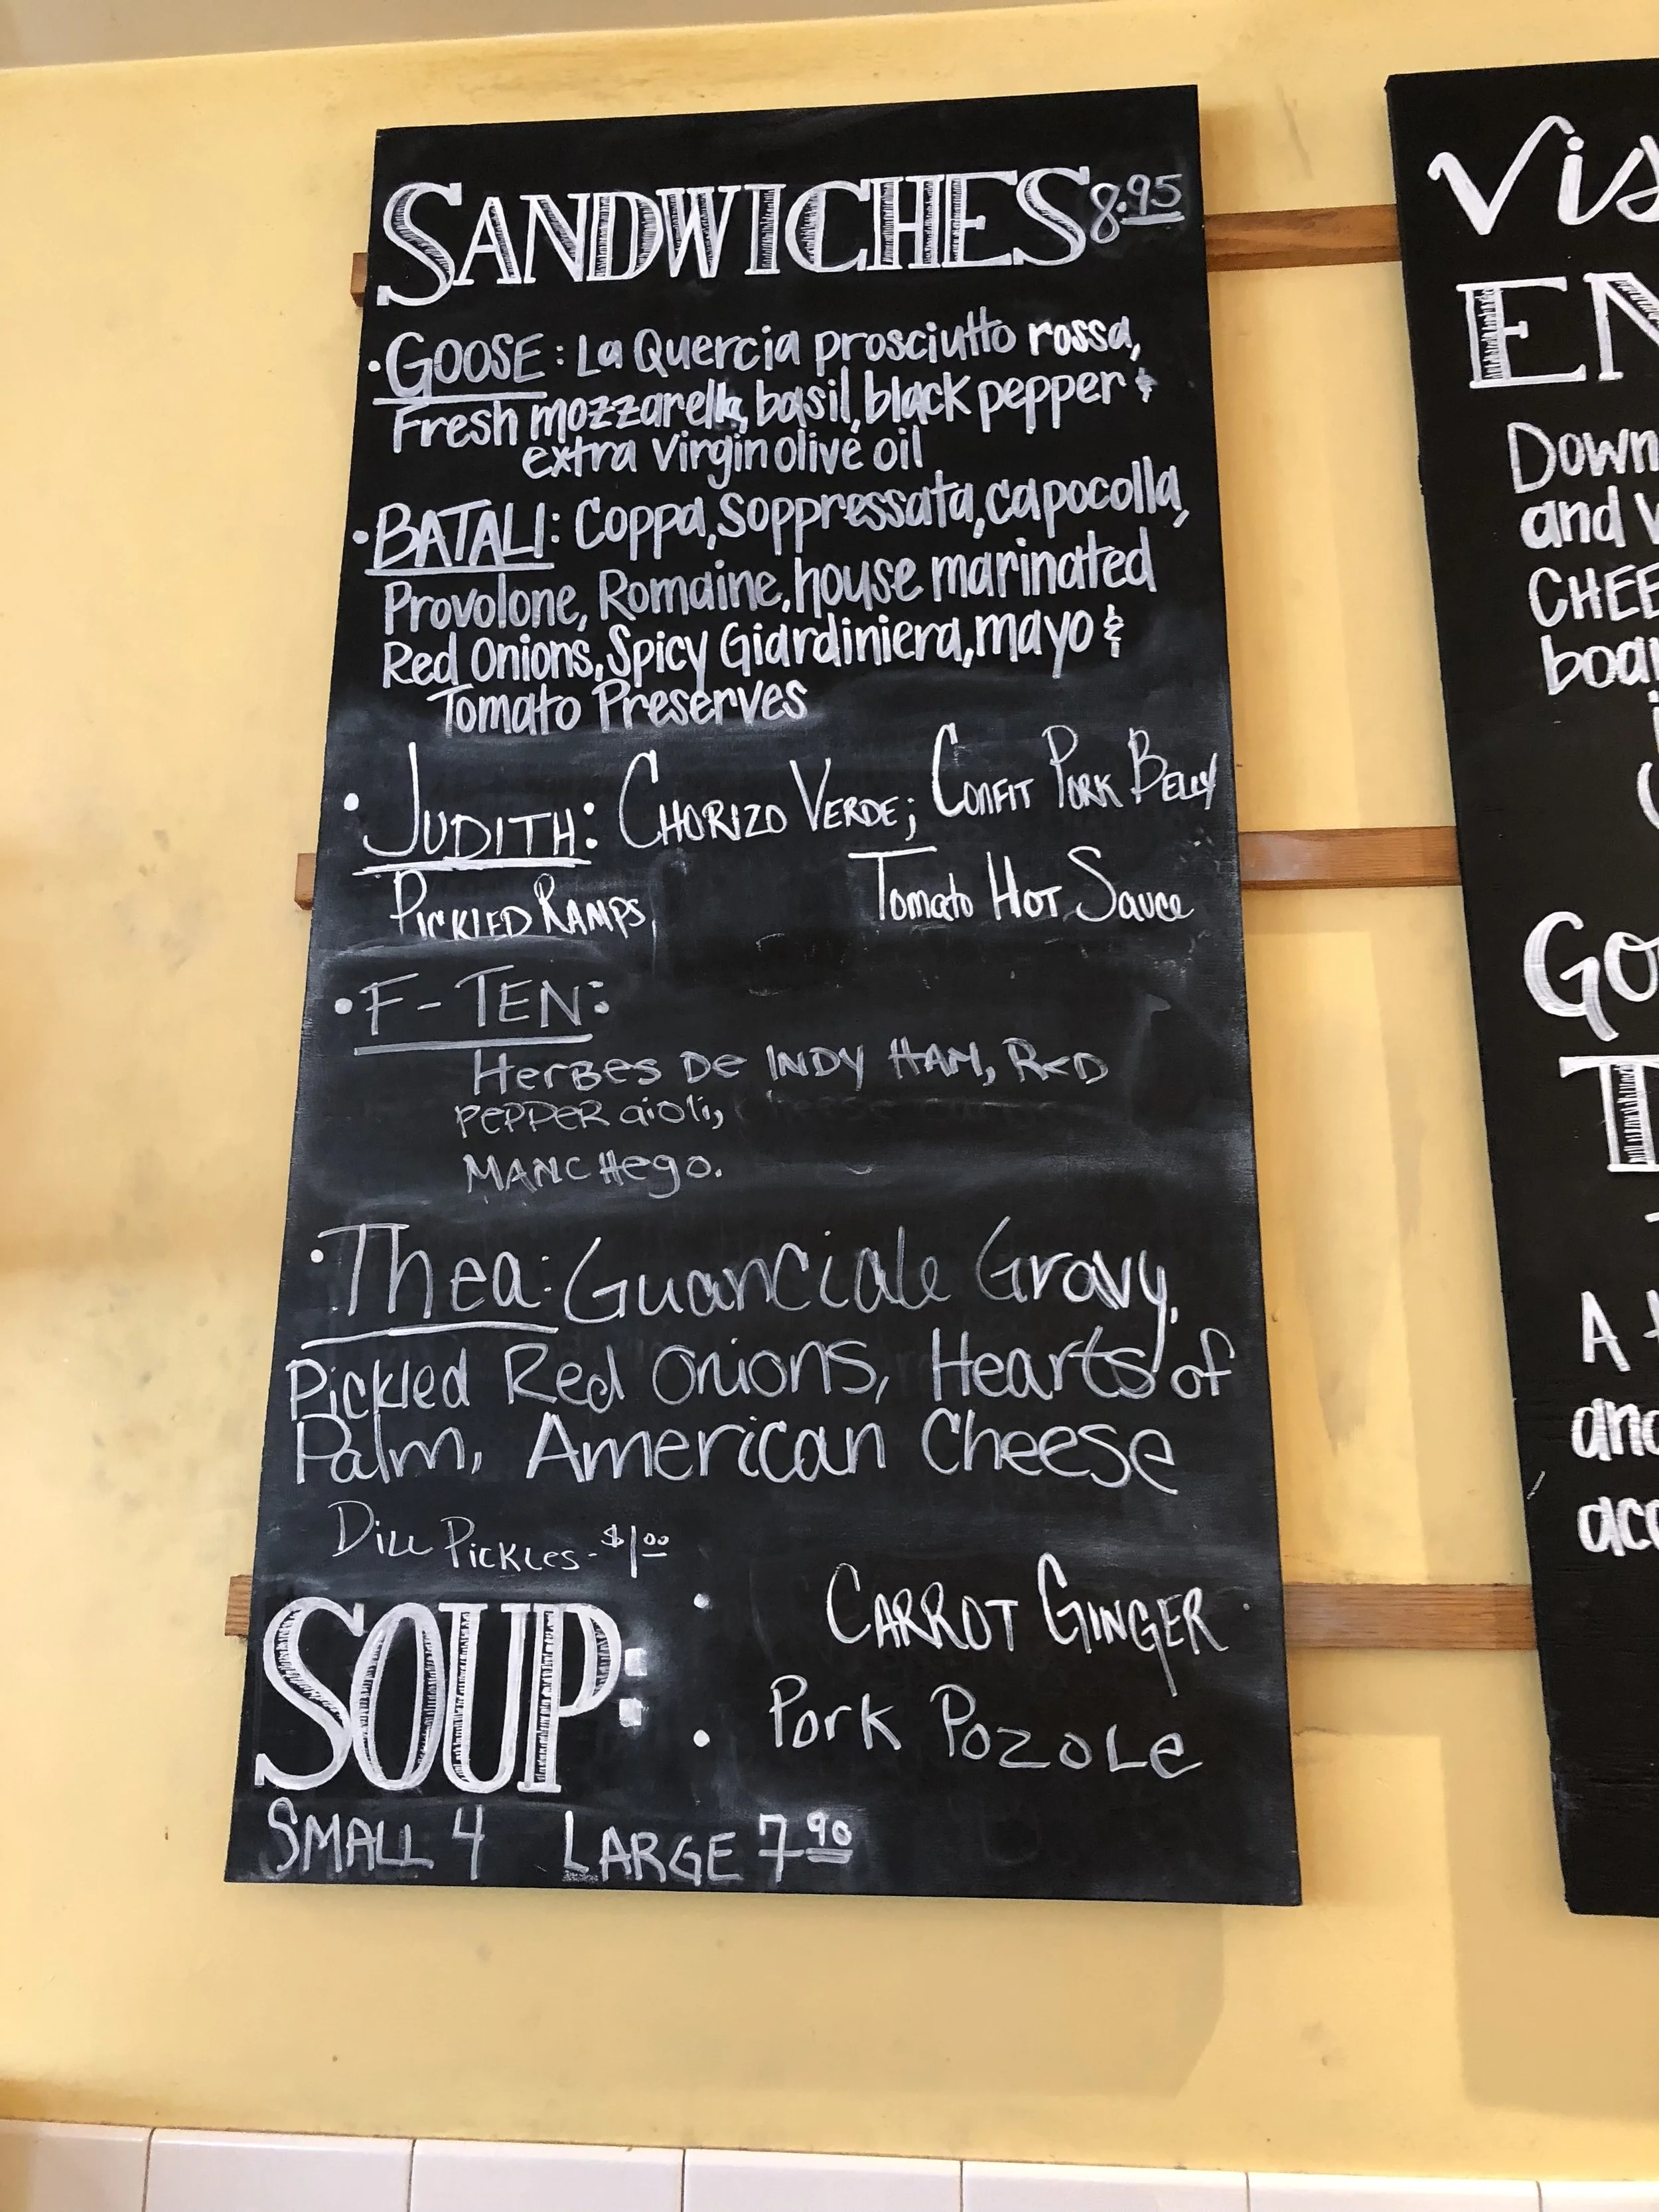 SANDWICHES 8.95
• GOOSE: La Quercia prosciutto rossa,
Fresh mozzarella, basil, black pepper &
extra virgin olive oil
• BATALI: Coppa, Soppressata, capocolla,
Provolone, Romaine, house marinated
Red Onions, Spicy Giardiniera, mayo &
Tomato Preserves
• JUDITH: CHORIZO VERDE; CONFIT PORK BELLY
PICKLED RAMPS, Tomato HOT Sauce
• F-TEN:
HerBes De INDY HAM, ReD
PEPPER aioli,
MANCHego.
• Thea: Guanciale Gravy,
Pickled Red Onions, Hearts of
Palm, American Cheese
DILL PICKLES - $1.00
SOUP: • CARROT GINGER
• Pork POZOLe
SMALL 4 LARGE 7.90
Vis
EN
Down
and
CHEE
boar
Go
T
A
and
acc